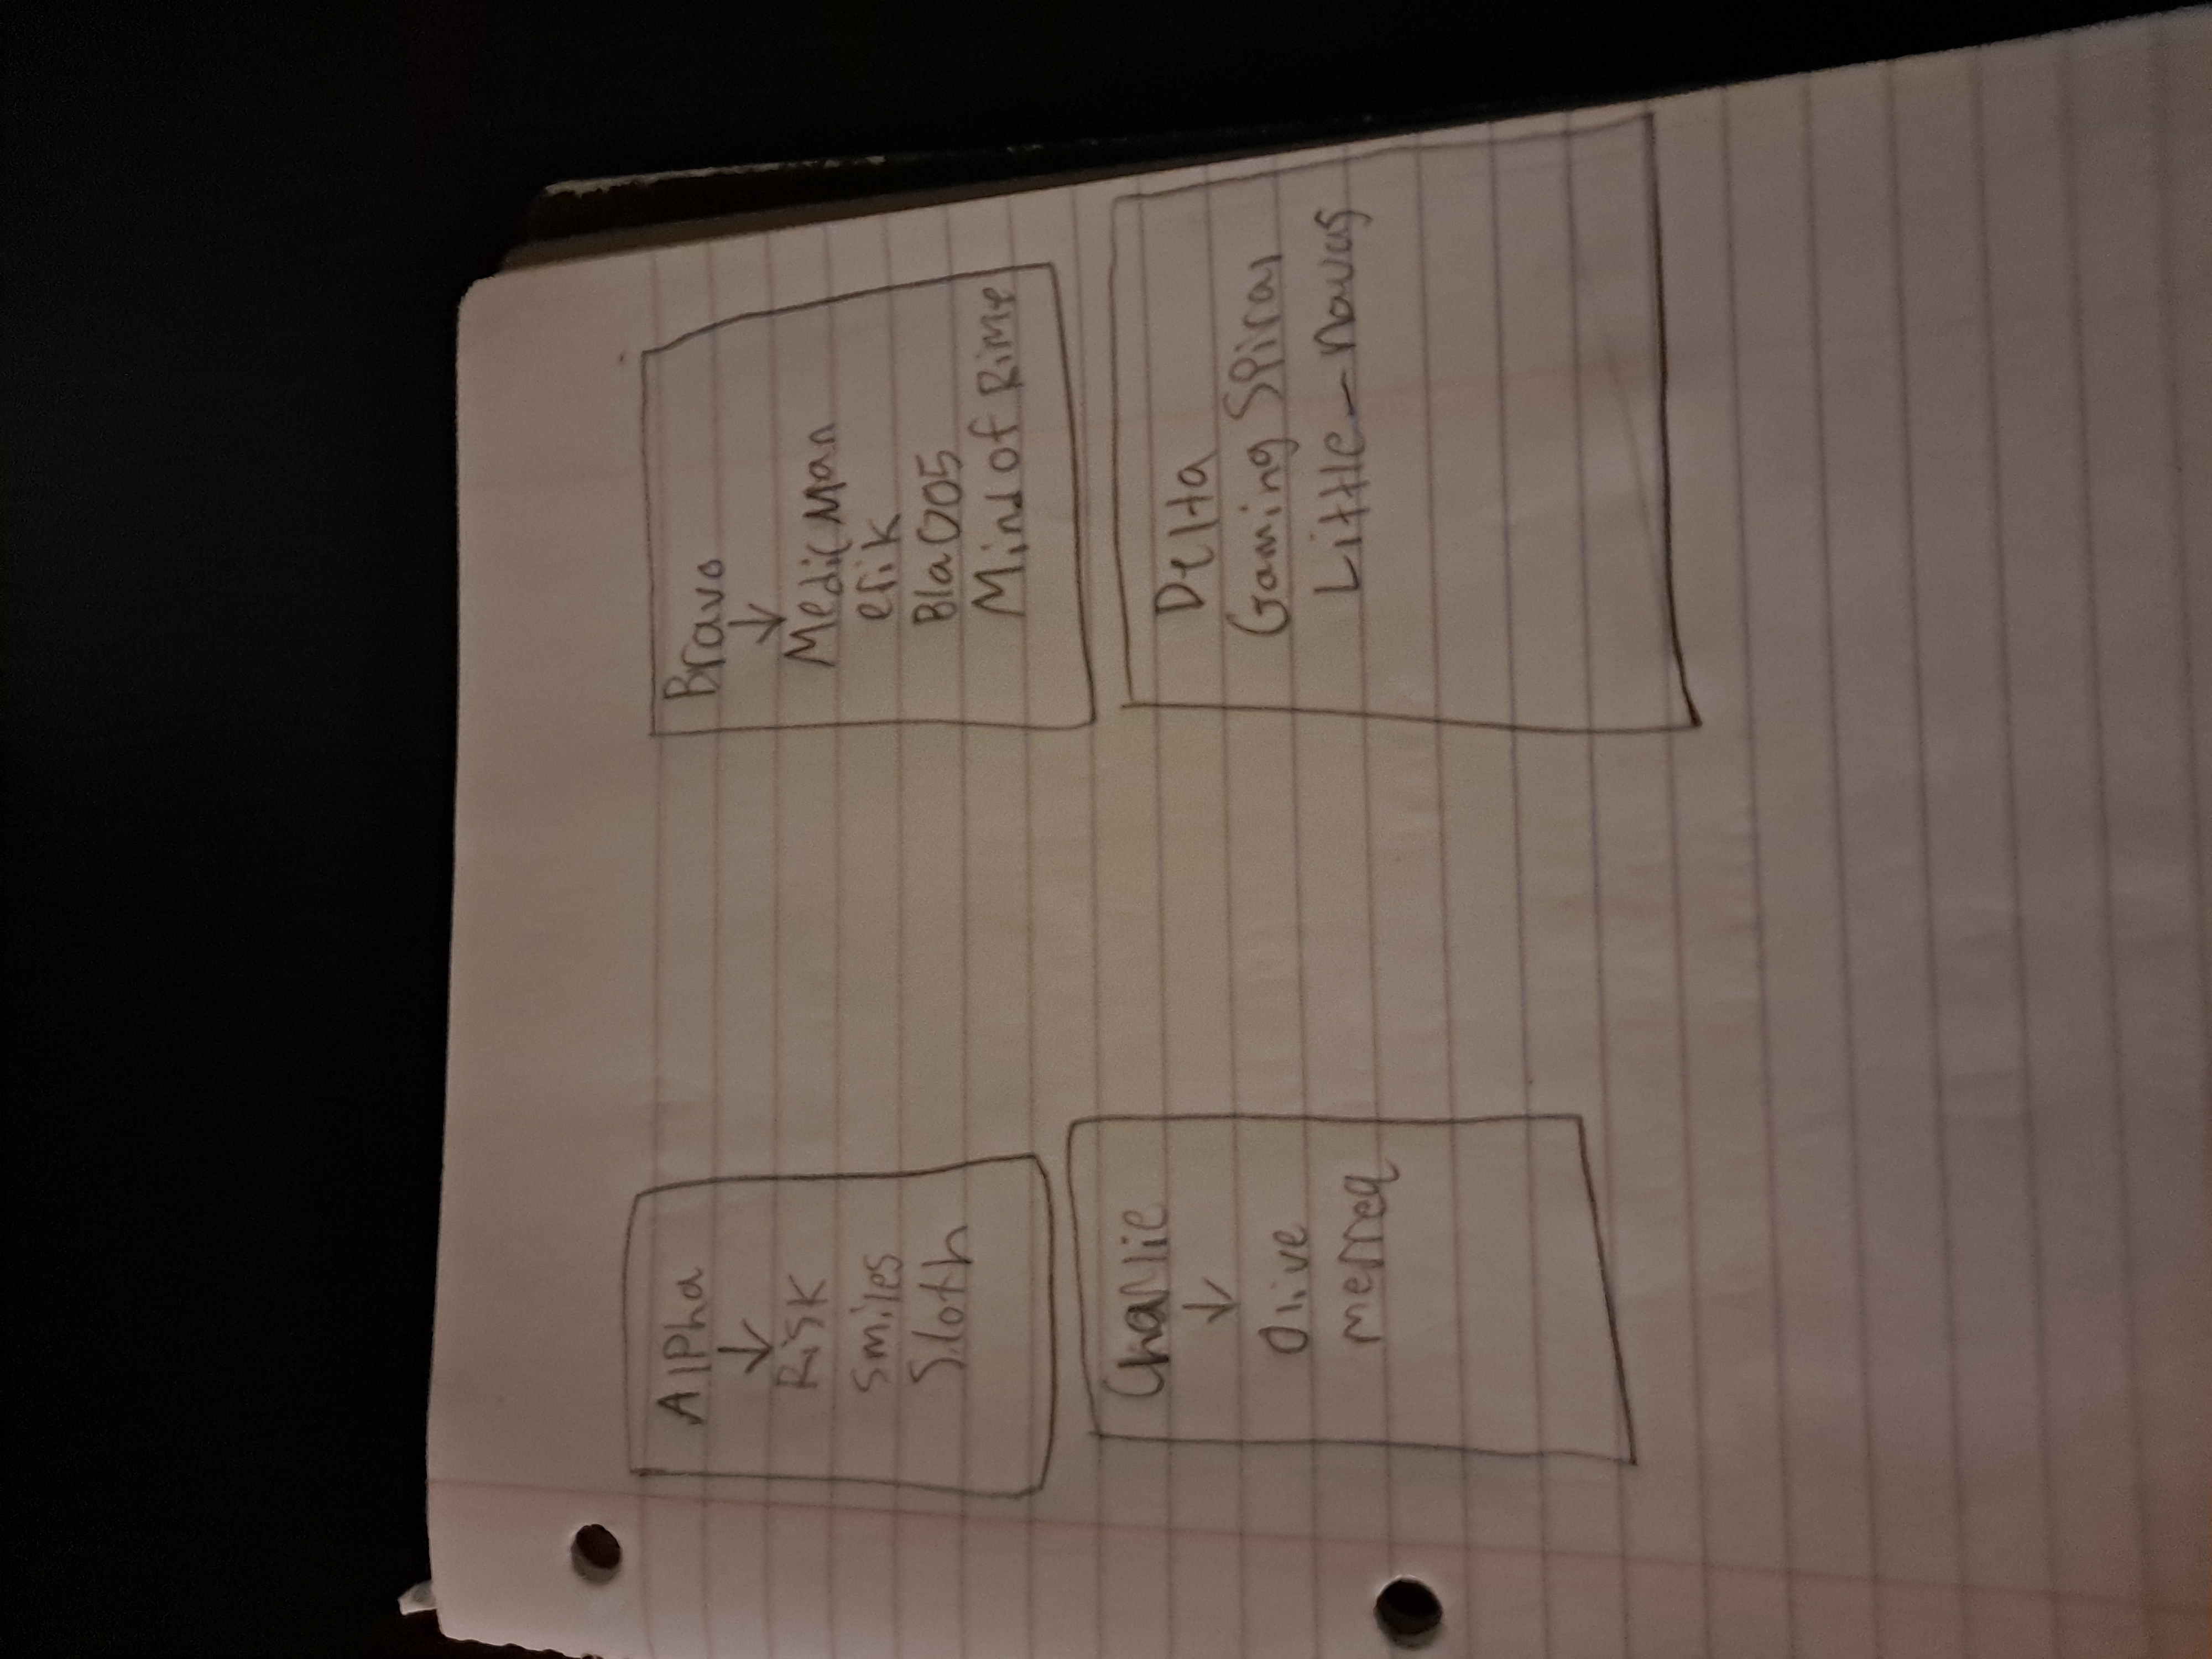 Alpha
↓
Risk
smiles
Sloth
Bravo
↓
Medic Man
erik
Bla005
Mind of Rime
Charlie
↓
Olive
merreq
Delta
Gaming Spiral
Little_novus